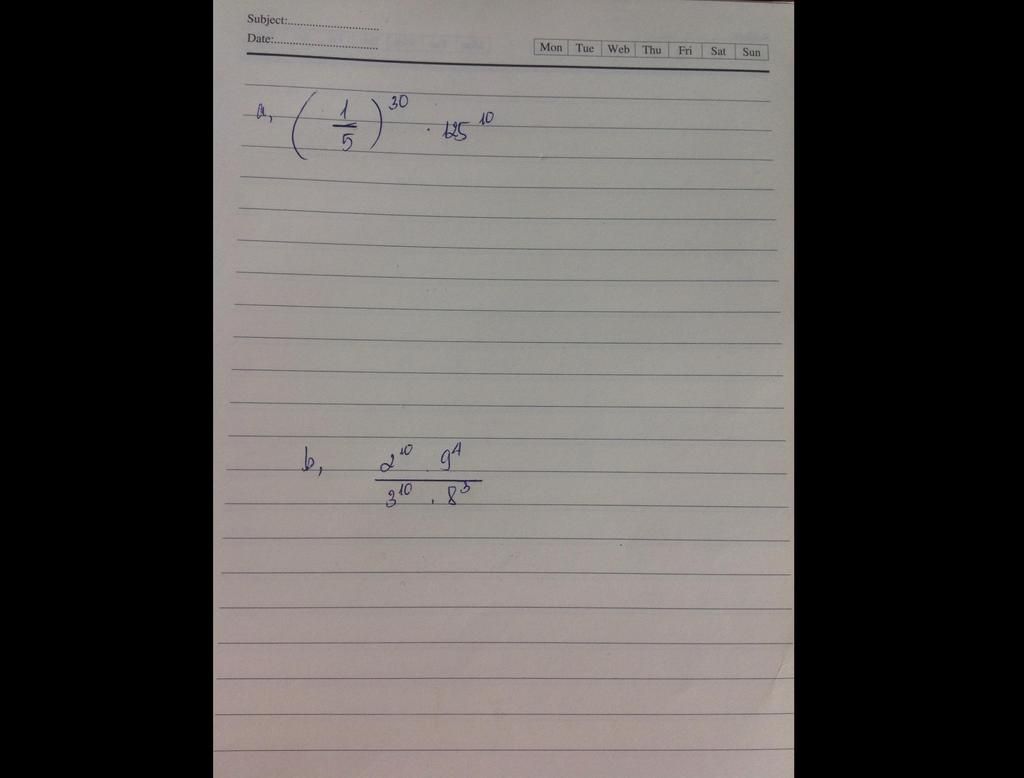 Subject:..............................
Date:..................................
Mon Tue Web Thu Fri Sat Sun
a, (1/5)^30 . 125^10
b, 2^10 . 9^4
3^10 . 8^3